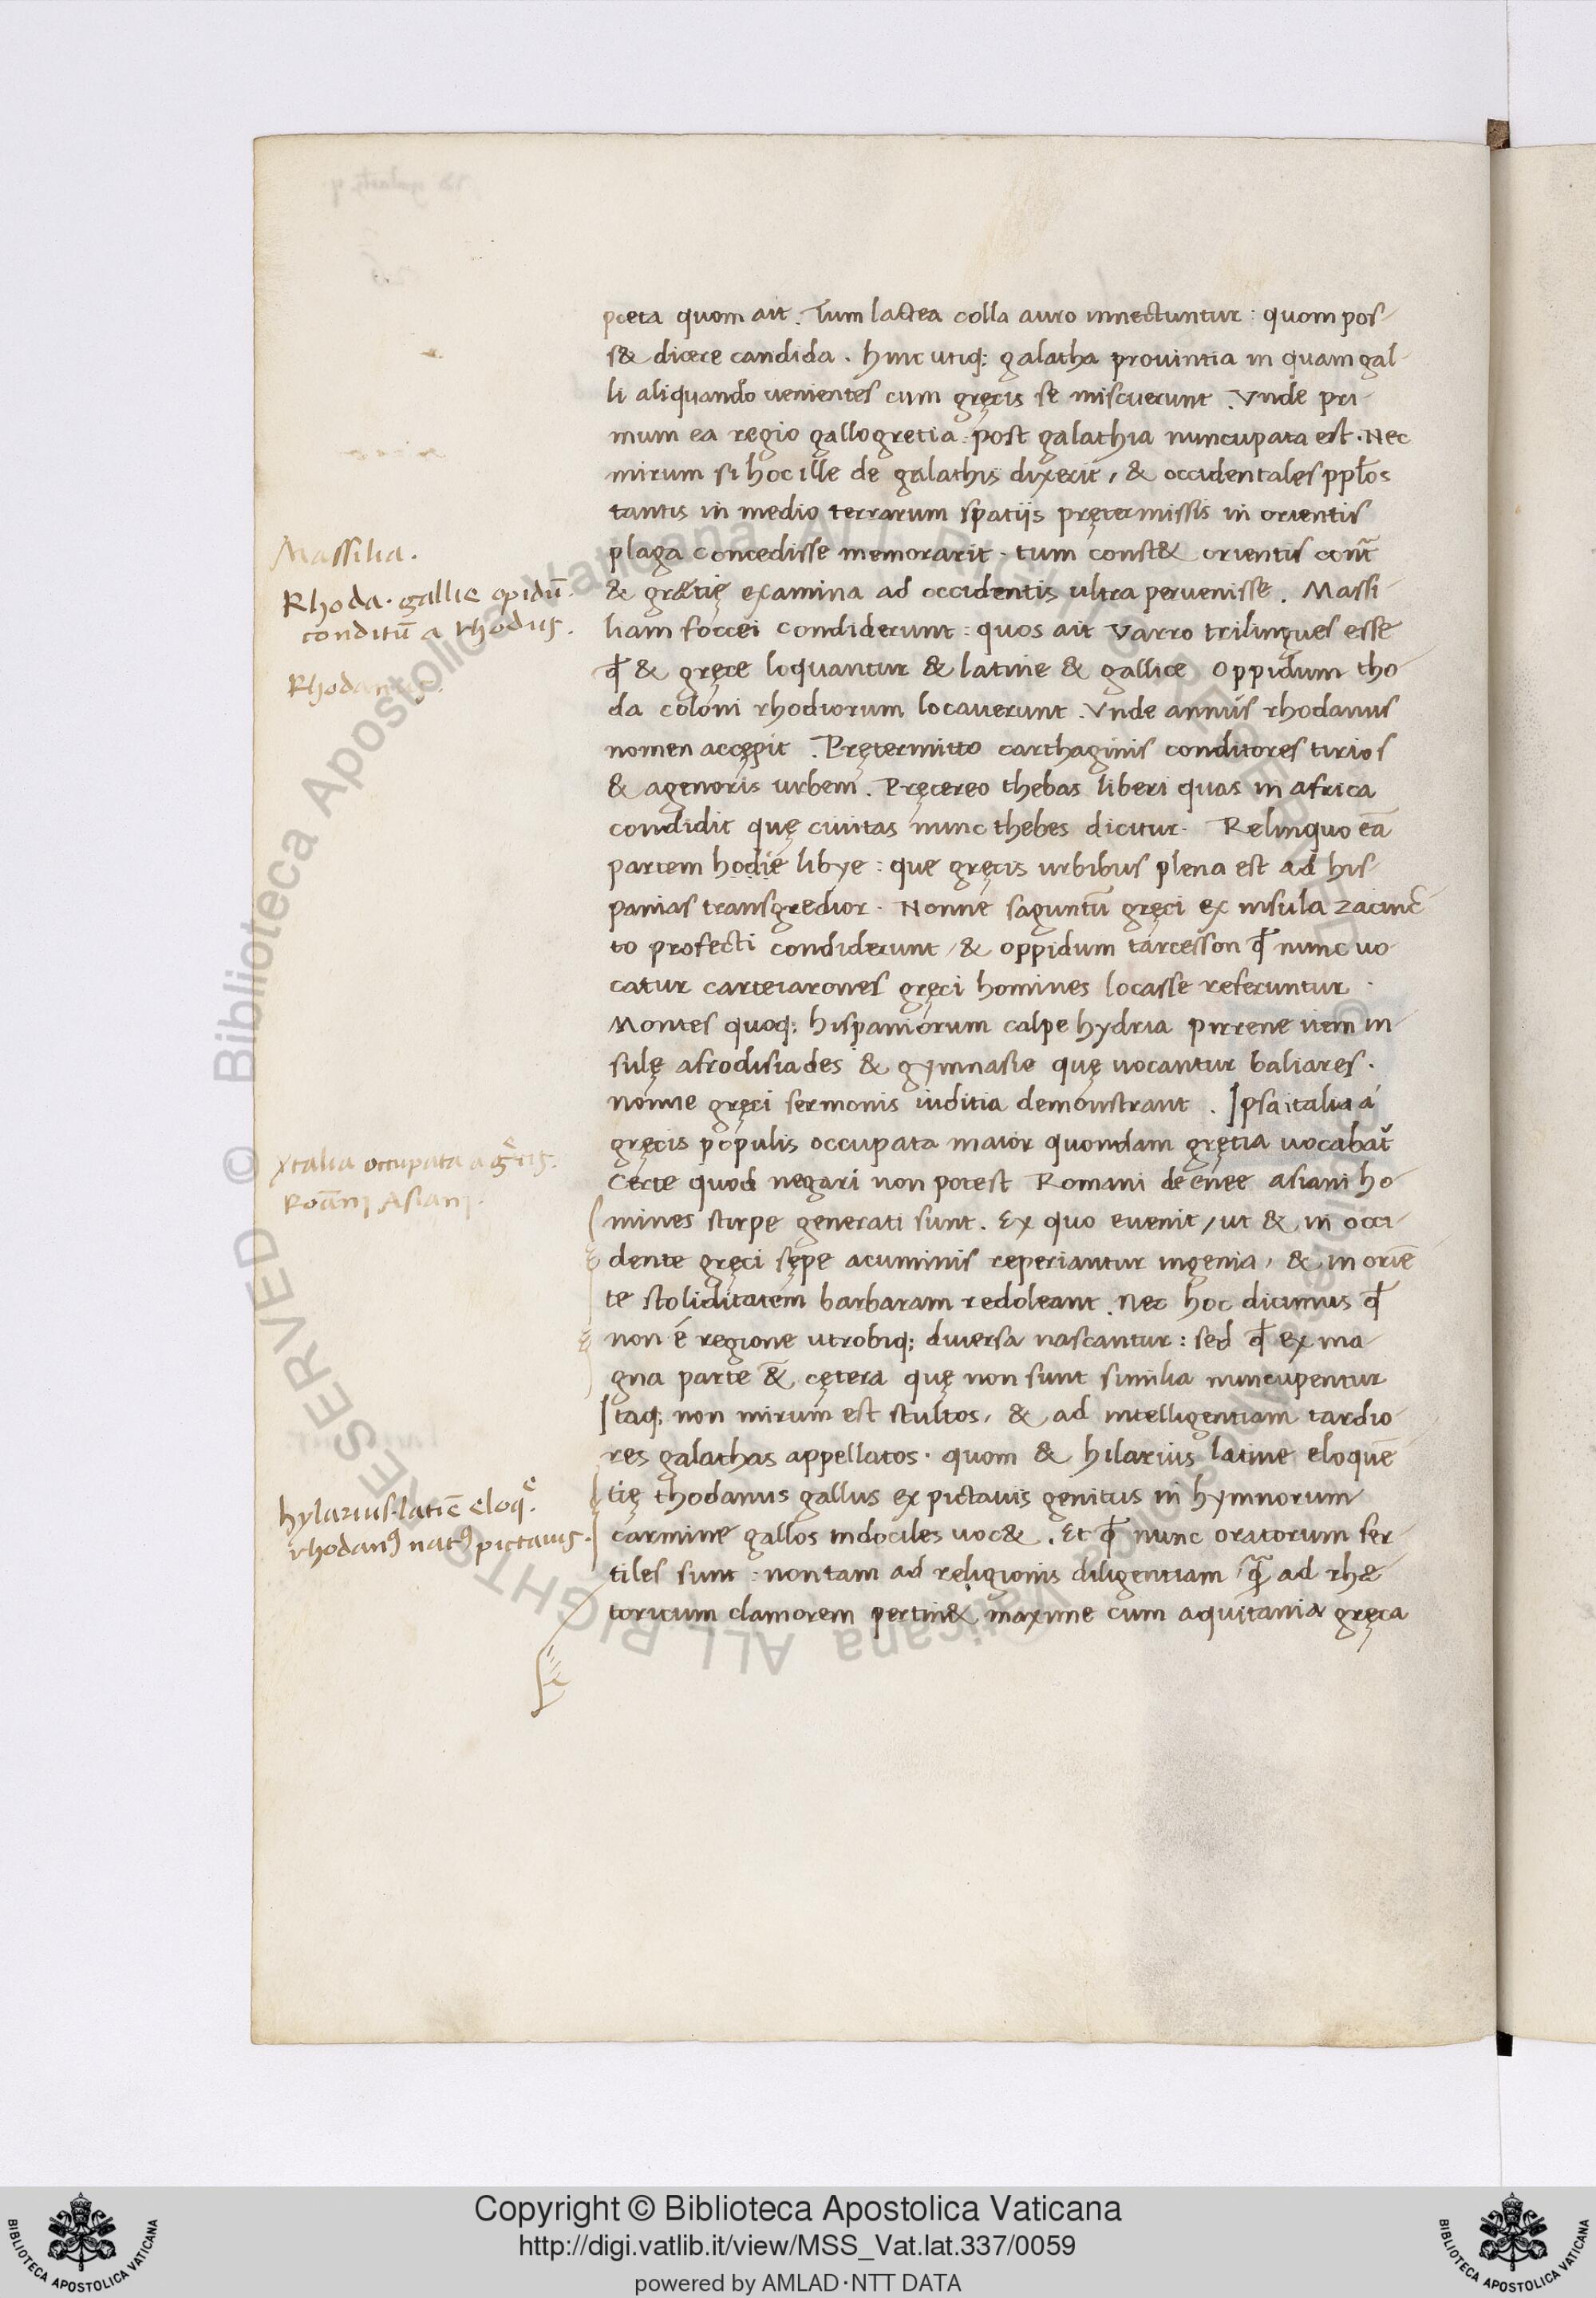 poeta quom ait. Tum lactea colla auro innectuntur: quom pos-
s& dicere candida. hinc utiq; galatha provintia in quam gal-
li aliquando uenientes cum gręcis se miscuerunt. Vnde pri-
mum ea regio gallogretia: post galathia nuncupata est. Nec
mirum si hoc ille de galathis dixerit, & occidentales pplos
tantis in medio terrarum spatiis prętermissis in orientis
plaga concedisse memorarit. tum const& orientis cont̄
& gretię examina ad occidentis ultra peruenisse. Massi-
liam foccei condiderunt: quos ait Varro trilingues esse
ꝙ & gręce loquantur & latine & gallice oppidum rho-
da coloni rhodiorum locauerunt. Vnde annus rhodanus
nomen accępit. Prętermitto carthaginis conditores tirios
& agenoris urbem. Pręcereo thebas liberi quas in africa
condidit quę ciuitas nunc thebes dicitur. Relinquo eā
partem hodie libye: que gręcis urbibus plena est ad his-
panias transgredior. Nonne saguntū gręci ex insula zacinc̄-
to profecti condiderunt, & oppidum tarcesson ꝙ nunc uo-
catur carteiarones gręci homines locasse referuntur.
Montes quoq; hispaniorum calpe hydria pirrene item in-
sulę afrodisiades & gymnasie quę uocantur baliares.
nonne gręci sermonis inditia demonstrant. Ipsa italia á
gręcis populis occupata maior quondam gręcia uocabat̄
Certe quod negari non potest Romani de enee asiani ho-
mines stirpe generati sunt. Ex quo euenit, ut & in occi-
dente gręci sępe acuminis reperiantur ingenia, & in oriē-
te stoliditatem barbaram redoleant. Nec hoc dicimus ꝙ
non é regione utrobiq; diuersa nascantur: sed ꝙ ex ma-
gna parte & cętera quę non sunt similia nuncupentur
Itaq; non mirum est stultos, & ad intelligentiam tardio-
res galathas appellatos. quom & hilarius latine eloquē-
tię rhodanus gallus ex pictauis genitus in hymnorum
carmine gallos indociles uoc&. Et ꝙ nunc oratorum fer-
tiles sunt: non tam ad religionis diligentiam q̄ ad rh&-
toricum clamorem pertin& maxime cum aquitania gręca
Massilia.
Rhoda. gallie opidū.
conditū a rhodiis.
Rhodanus.
Ytalia occupata a gręcis.
Roāni Asiani.
hylarius. latiē eloq̄.
rhodanꝰ natꝰ pictauis.
Copyright © Biblioteca Apostolica Vaticana
http://digi.vatlib.it/view/MSS_Vat.lat.337/0059
powered by AMLAD·NTT DATA
BIBLIOTECA APOSTOLICA VATICANA
BIBLIOTECA APOSTOLICA VATICANA
© Biblioteca Apostolica Vaticana ALL RIGHTS RESERVED